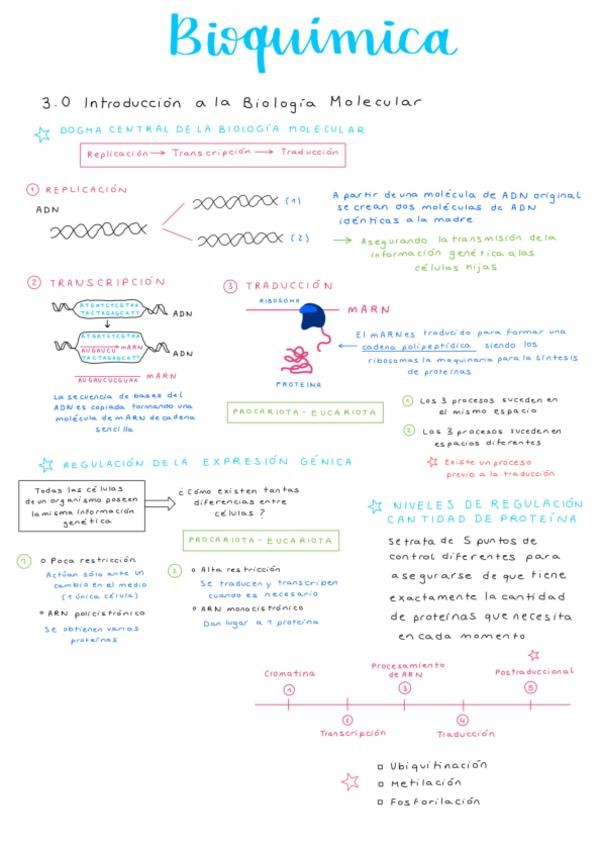 Bioquímica
3.0 Introducción a la Biología Molecular
DOGMA CENTRAL DE LA BIOLOGÍA MOLECULAR
Replicación → Transcripción → Traducción
1 REPLICACIÓN
ADN
(1)
(2)
A partir de una molécula de ADN original
se crean dos moléculas de ADN
idénticas a la madre
→ Asegurando la transmisión de la
información genética a las
células hijas
2 TRANSCRIPCIÓN
ATGATCTCGTAA
TACTAGAGCATT
ADN
ATGATCTCGTAA
AUGAUCU mARN
TACTAGAGCATT
ADN
mARN
AUGAUCUCGUAA
La secuencia de bases del
ADN es copiada formando una
molécula de mARN de cadena
sencilla
3 TRADUCCIÓN
RIBOSOMA
mARN
PROTEINA
El mARN es traducido para formar una
cadena polipeptídica siendo los
ribosomas la maquinaria para la síntesis
de proteínas
PROCARIOTA - EUCARIOTA
1 Los 3 procesos suceden en
el mismo espacio
2 Los 3 procesos suceden en
espacios diferentes
Existe un proceso
previo a la traducción
REGULACIÓN DE LA EXPRESIÓN GÉNICA
Todas las células
de un organismo poseen
la misma información
genética
¿Cómo existen tantas
diferencias entre
células?
PROCARIOTA - EUCARIOTA
1
Poca restricción
Actúan sólo ante un
cambio en el medio
(1 única célula)
ARN policistrónico
Se obtienen varias
proteínas
2
Alta restricción
Se traducen y transcriben
cuando es necesario
ARN monocistrónico
Dan lugar a 1 proteína
NIVELES DE REGULACIÓN
CANTIDAD DE PROTEÍNA
Se trata de 5 puntos de
control diferentes para
asegurarse de que tiene
exactamente la cantidad
de proteínas que necesita
en cada momento
Cromatina
1
2
Transcripción
Procesamiento
de ARN
3
4
Traducción
Postraduccional
5
Ubiquitinación
Metilación
Fosforilación